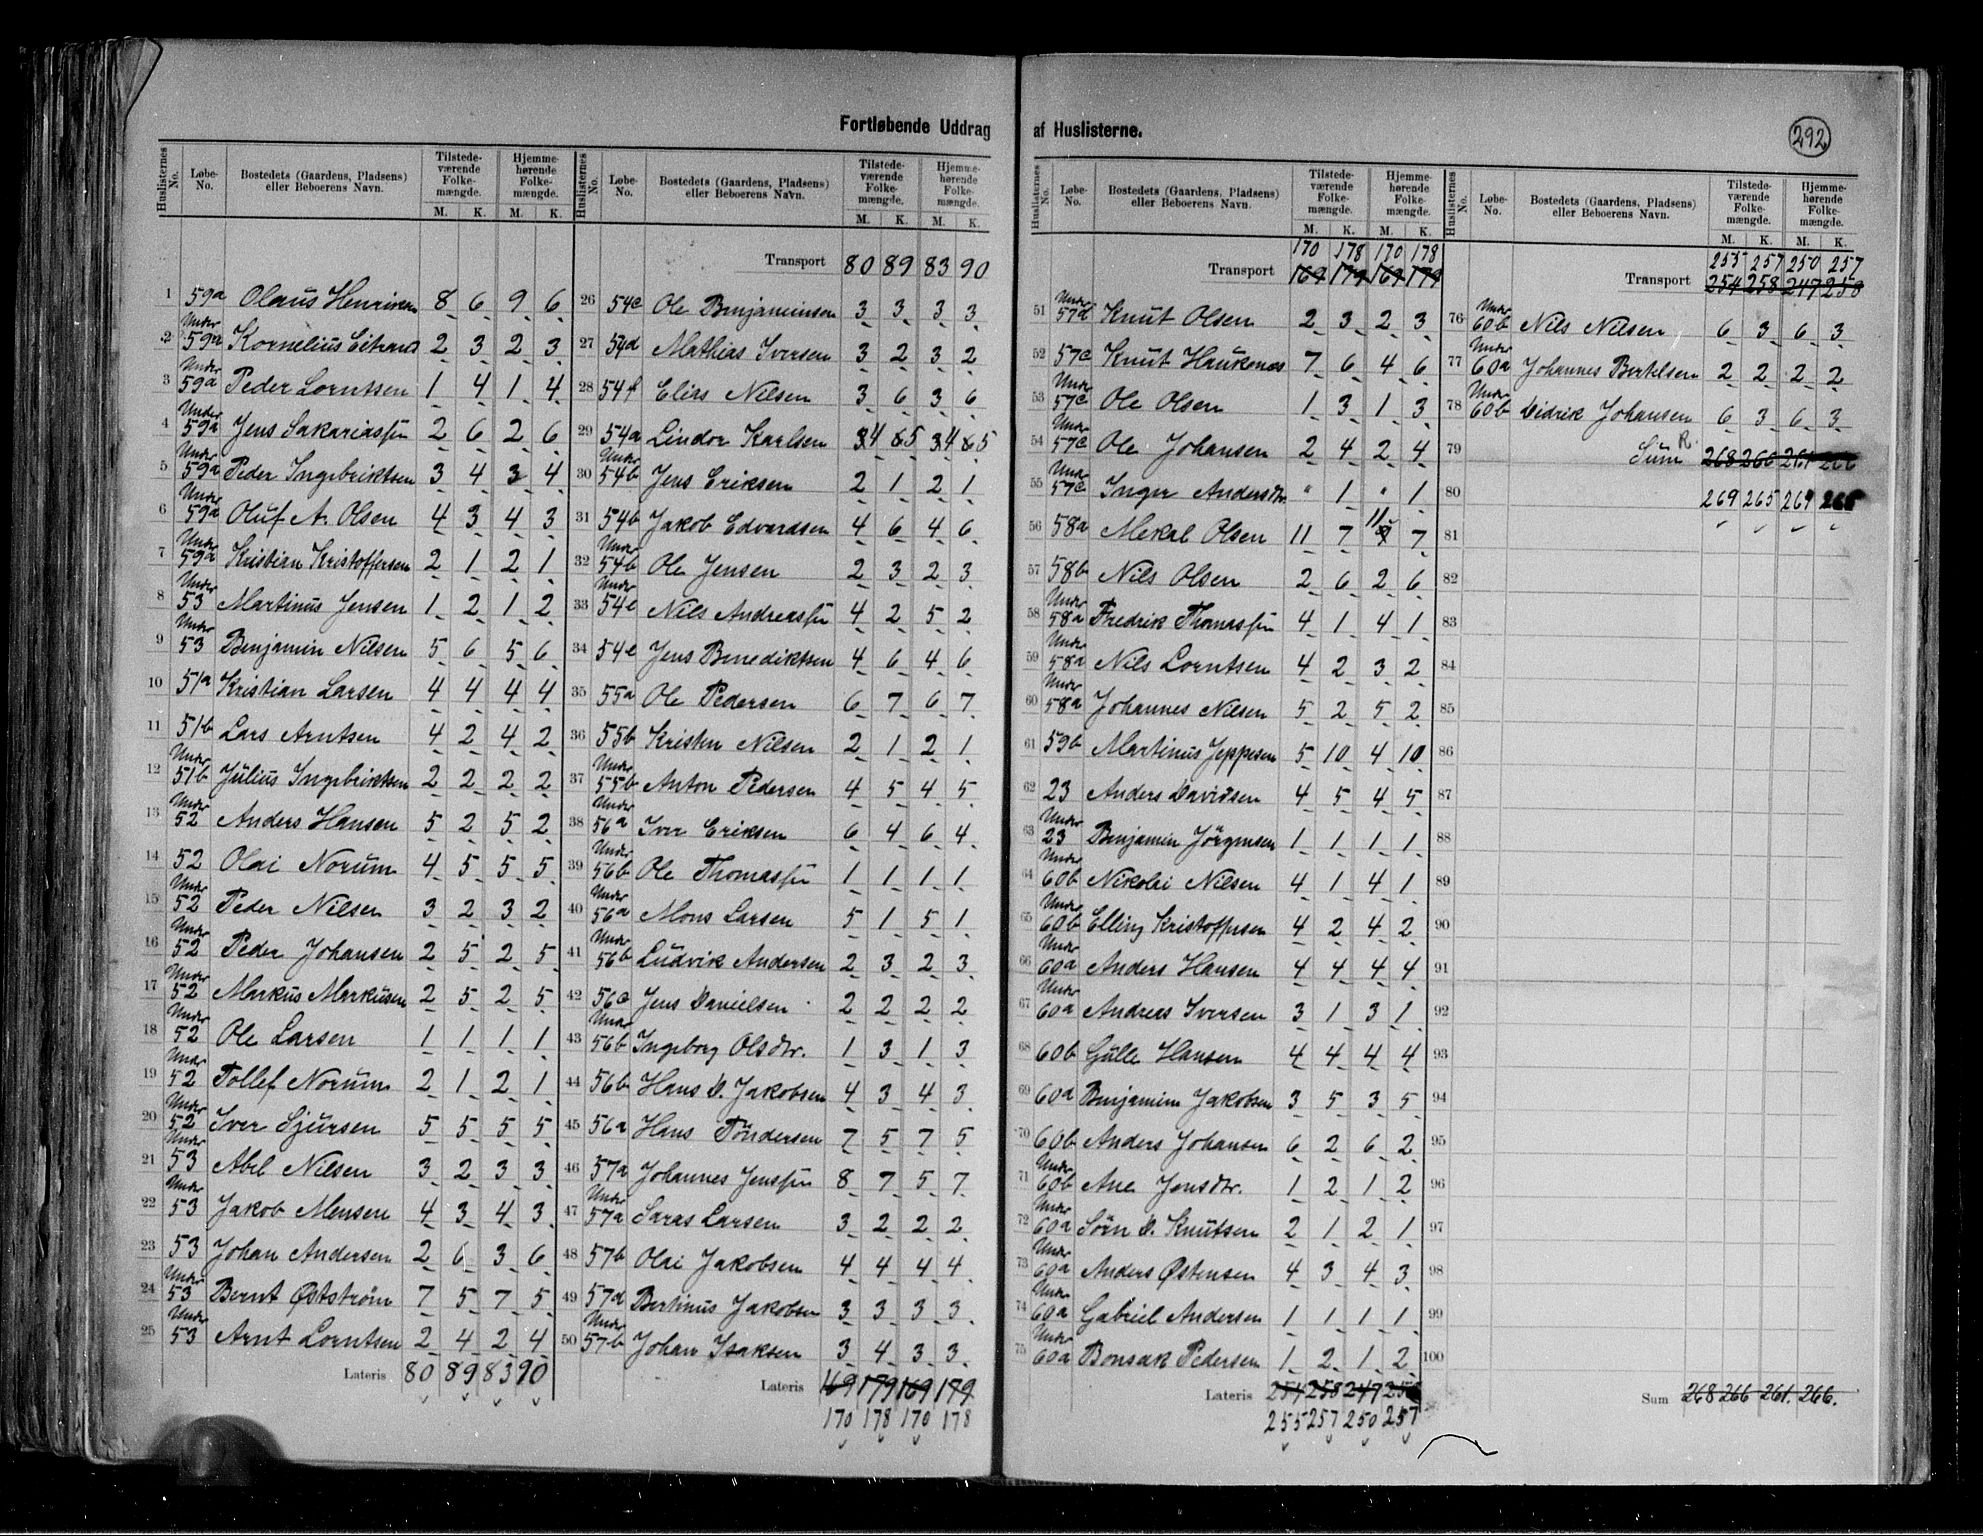 292
Fortløbende Uddrag af Huslisterne.
Huslisternes No. Løbe-No. Bostedets (Gaardens, Pladsens) eller Beboerens Navn. Tilstede-værende Folke-mængde. M. K. Hjemme-hørende Folke-mængde. M. K.
1 59a Olaus Henriksen 8 6 9 6
2 Under 59a Kornelius 2 3 2 3
3 Under 59a Peder Lorntsen 1 4 1 4
4 Under 59a Jens Sakariassen 2 6 2 6
5 Under 59a Peder Ingebriktsen 3 4 3 4
6 Under 59a Oluf A. Olsen 4 3 4 3
7 Under 59a Kristian Kristoffersen 2 1 2 1
8 Under 53 Martinus Jensen 1 2 1 2
9 Under 53 Benjamin Nilsen 5 6 5 6
10 51a Kristian Larsen 4 4 4 4
11 51b Lars Arntsen 4 2 4 2
12 Under 51b Julius Ingebriktsen 2 2 2 2
13 Under 52 Anders Hansen 5 2 5 2
14 52 Olai Norum 4 5 5 5
15 Under 52 Peder Nilsen 3 2 3 2
16 Under 52 Peder Johansen 2 5 2 5
17 Under 52 Markus Markusen 2 5 2 5
18 Under 52 Ole Larsen 1 1 1 1
19 Under 52 Tollef Norum 2 1 2 1
20 Under 52 Iver Sjursen 5 5 5 5
21 Under 53 Abel Nilsen 3 2 3 3
22 Under 53 Jakob Mensen 4 3 4 3
23 53 Johan Andersen 2 6 3 6
24 Under 53 Bernt Østström 7 5 7 5
25 Under 53 Arnt Lorntsen 2 4 2 4
Lateris 80 89 83 90
Huslisternes No. Løbe-No. Bostedets (Gaardens, Pladsens) eller Beboerens Navn. Tilstede-værende Folke-mængde. M. K. Hjemme-hørende Folke-mængde. M. K.
Transport 80 89 83 90
26 54c Ole Benjaminsen 3 3 3 3
27 54d Mathias Iversen 3 2 3 2
28 54f Elias Nilsen 3 6 3 6
29 54a Lindor Karlsen 4 5 4 5
30 Under 54b Jens Eriksen 2 1 2 1
31 54b Jakob Edvardsen 4 6 4 6
32 Under 54b Ole Jensen 2 3 2 3
33 Under 54e Nils Andreassen 4 2 5 2
34 54e Jens Benediktsen 4 6 4 6
35 55a Ole Pedersen 6 7 6 7
36 55b Kristen Nilsen 2 1 2 1
37 Under 55b Anton Pedersen 4 5 4 5
38 Under 56a Iver Eriksen 6 4 6 4
39 Under 56b Ole Thomassen 1 1 1 1
40 Under 56a Mons Larsen 5 1 5 1
41 Under 56b Ludvik Andersen 2 3 2 3
42 56c Jens Danielsen 2 2 2 2
43 Under 56b Ingeborg Olsdtr. 1 3 1 3
44 56b Hans D. Jakobsen 4 3 4 3
45 56a Hans Töndersen 7 5 7 5
46 57a Johannes Jenssen 8 7 5 7
47 Under 57a Saras Larsen 3 2 2 2
48 57b Olai Jakobsen 4 4 4 4
49 57d Bertinus Jakobsen 3 3 3 3
50 Under 57b Johan Isaksen 3 4 3 3
Lateris 169 179 169 179
170 178 170 178
Huslisternes No. Løbe-No. Bostedets (Gaardens, Pladsens) eller Beboerens Navn. Tilstede-værende Folke-mængde. M. K. Hjemme-hørende Folke-mængde. M. K.
170 178 170 178
Transport 169 179 169 179
51 Under 57d Knut Olsen 2 3 2 3
52 57c Knut Haukenæs 7 6 4 6
53 Under 57c Ole Olsen 1 3 1 3
54 Under 57c Ole Johansen 2 4 2 4
55 Under 57c Inger Andersdtr. " 1 " 1
56 58a Mekal Olsen 11 7 11 7
57 58b Nils Olsen 2 6 2 6
58 Under 58a Fredrik Thomassen 4 1 4 1
59 Under 58a Nils Lorntsen 4 2 3 2
60 Under 58a Johannes Nilsen 5 2 5 2
61 59b Martinus Jeppesen 5 10 4 10
62 23 Anders Davidsen 4 5 4 5
63 Under 23 Benjamin Jörgensen 1 1 1 1
64 Under 60b Nikolai Nilsen 4 1 4 1
65 Under 60b Elling Kristoffersen 4 2 4 2
66 Under 60a Anders Hansen 4 4 4 4
67 Under 60a Andreas Iversen 3 1 3 1
68 60b Gulle Hansen 4 4 4 4
69 60a Benjamin Jakobsen 3 5 3 5
70 60b Anders Johansen 6 2 6 2
71 Under 60b Ane Jensdtr. 1 2 1 2
72 Under 60a Sørn D. Knutsen 2 1 2 1
73 Under 60a Anders Østensen 4 3 4 3
74 Under 60a Gabriel Andersen 1 1 1 1
75 Under 60a Bonsak Pedersen 1 2 1 2
Lateris 254 258 247 258
255 257 250 257
Huslisternes No. Løbe-No. Bostedets (Gaardens, Pladsens) eller Beboerens Navn. Tilstede-værende Folke-mængde. M. K. Hjemme-hørende Folke-mængde. M. K.
255 257 250 257
Transport 254 258 247 258
76 Under 60b Nils Nilsen 6 3 6 3
77 Under 60a Johannes Bertelsen 2 2 2 2
78 Under 60b Didrik Johansen 6 3 6 3
R.
79 Sum 268 266 261 266
80 269 265 264 265
81
82
83
84
85
86
87
88
89
90
91
92
93
94
95
96
97
98
99
100
Sum 268 266 261. 266.